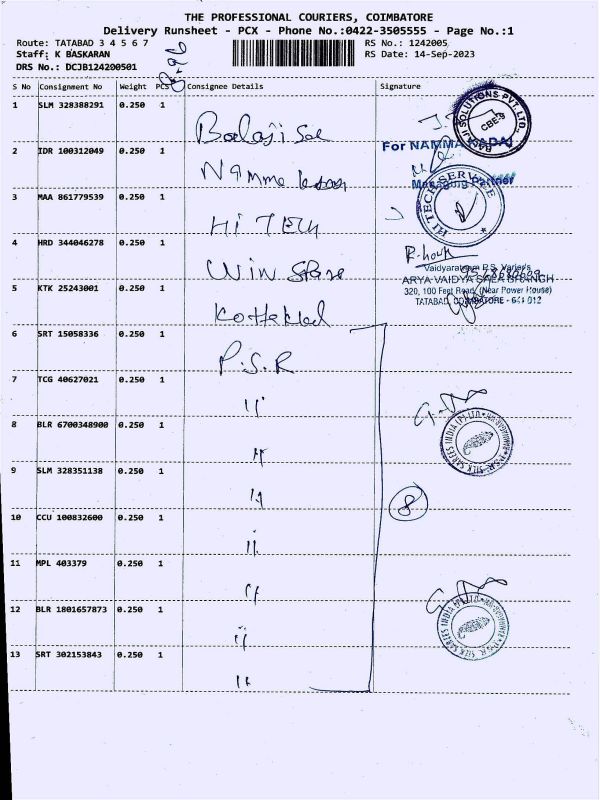 THE PROFESSIONAL COURIERS, COIMBATORE
Delivery Runsheet - PCX - Phone No.:0422-3505555 - Page No.:1
Route: TATABAD 3 4 5 6 7
RS No.: 1242005
Staff: K BASKARAN
RS Date: 14-Sep-2023
DRS No.: DCJB124200501
S No Consignment No Weight PCS Consignee Details Signature
1 SLM 328388291 0.250 1
Balaji Sol
BALAJI SOLUTIONS PVT. LTD.
CBE-9
2 IDR 100312049 0.250 1
Namma kadai
For NAMMA KADAI
Managing Partner
3 MAA 861779539 0.250 1
HI TECH
HI TECH SERVICE
4 HRD 344046278 0.250 1
Win Store
Vaidyaratnam P.S. Varier's
ARYA VAIDYA SALA BRANCH
320, 100 Feet Road, (Near Power House)
TATABAD, COIMBATORE - 641 012
5 KTK 25243001 0.250 1
Kottakkal
6 SRT 15058336 0.250 1
P.S.R
7 TCG 40627021 0.250 1
"
8 BLR 6700348900 0.250 1
"
P.S.R. SILK SAREES INDIA (P) LTD
9 SLM 328351138 0.250 1
"
8
10 CCU 100832600 0.250 1
"
11 MPL 403379 0.250 1
"
12 BLR 1801657873 0.250 1
"
P.S.R. SILK SAREES INDIA (P) LTD
13 SRT 302153843 0.250 1
"